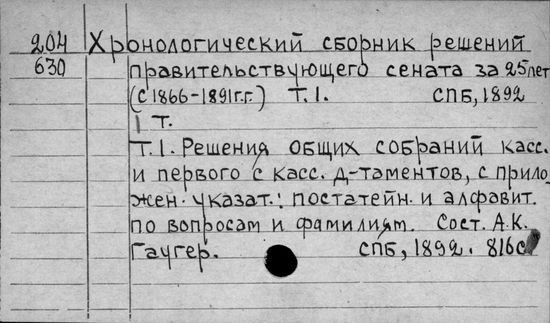 204 Хронологический сборник решений
630 правительствующего сената за 25 лет
(с 1866-1891г.г.) Т.I. СПБ, 1892
1 т.
Т.I. Решения общих собраний касс.
и первого с касс. д-таментов, с прило
жен. указат.: постатейн. и алфавит.
по вопросам и фамилиям. Сост. А.К.
Гаугер. СПБ, 1892. 816с